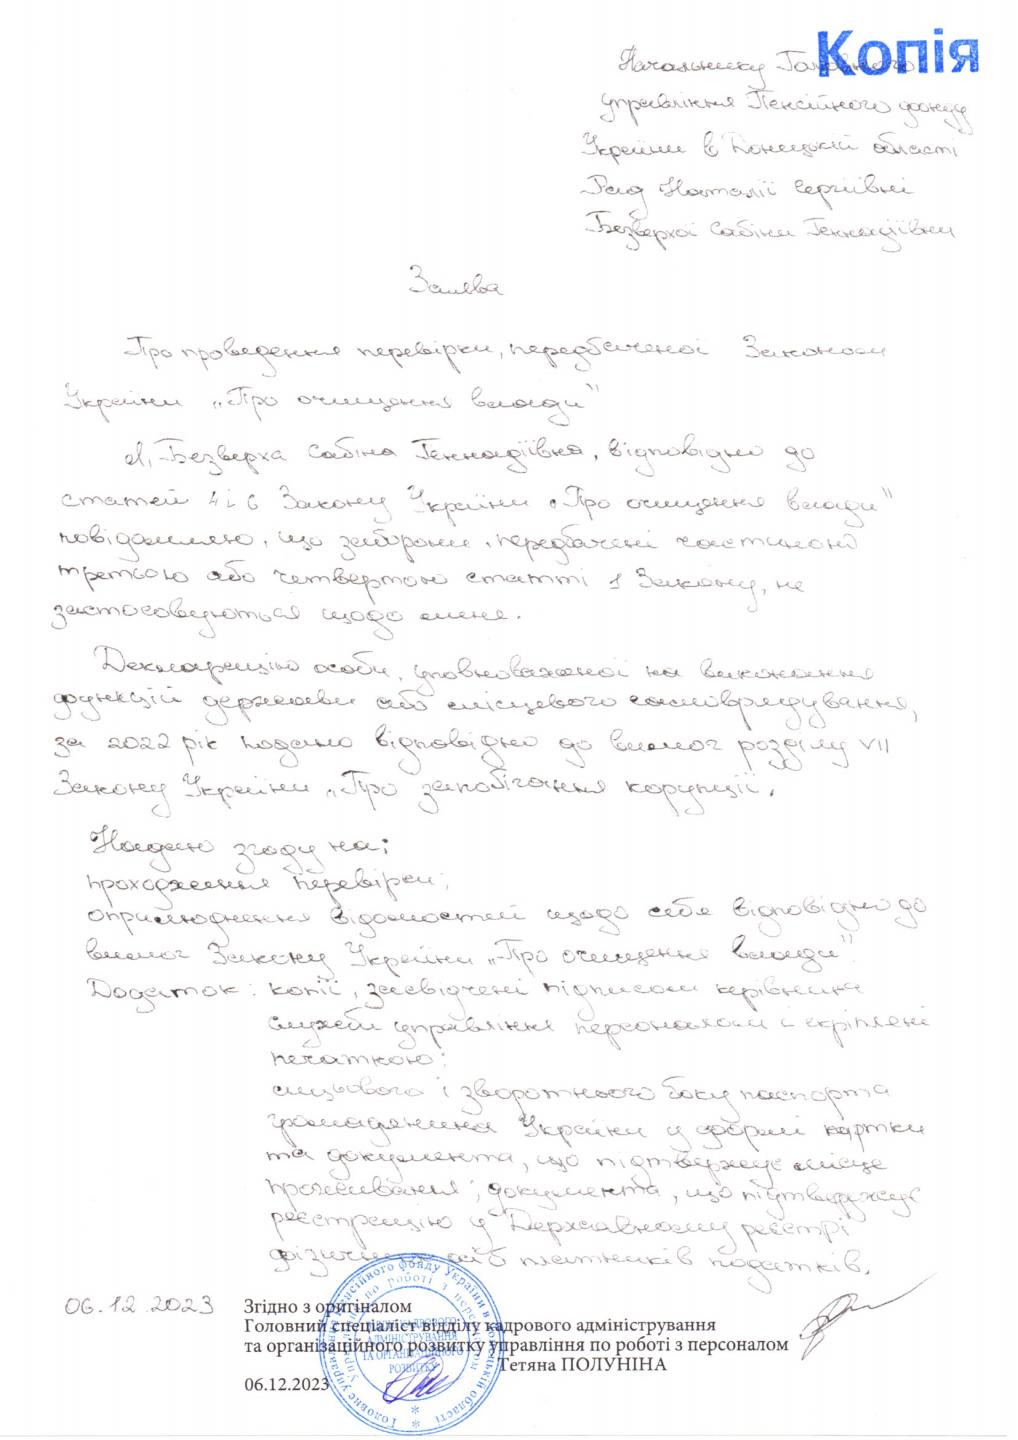 Копія
Начальнику Головного
управління Пенсійного фонду
України в Донецькій області
Рад Наталії Сергіївні
Безверхої Сабіни Геннадіївни
Заява
Про проведення перевірки, передбаченої Законом
України „Про очищення влади"
Я, Безверха Сабіна Геннадіївна, відповідно до
статей 4 і 6 Закону України „Про очищення влади"
повідомляю, що заборони, передбачені частиною
третьою або четвертою статті 1 Закону, не
застосовуються щодо мене.
Декларацію особи, уповноваженої на виконання
функцій держави або місцевого самоврядування,
за 2022 рік подано відповідно до вимог розділу VII
Закону України „Про запобігання корупції".
Надаю згоду на:
проходження перевірки;
оприлюднення відомостей щодо себе відповідно до
вимог Закону України „Про очищення влади"
Додаток: копії, засвідчені підписом керівника
служби управління персоналом і скріплені
печаткою:
лицьового і зворотнього боку паспорта
громадянина України у формі картки
та документа, що підтверджує місце
проживання; документа, що підтверджує
реєстрацію у Державному реєстрі
фізичних осіб платників податків.
06.12.2023
Згідно з оригіналом
Головний спеціаліст відділу кадрового адміністрування
та організаційного розвитку управління по роботі з персоналом
Тетяна ПОЛУНІНА
06.12.2023
Головне управління Пенсійного фонду України в Донецькій області
Управління по роботі з персоналом
ВІДДІЛ КАДРОВОГО
АДМІНІСТРУВАННЯ
ТА ОРГАНІЗАЦІЙНОГО
РОЗВИТКУ